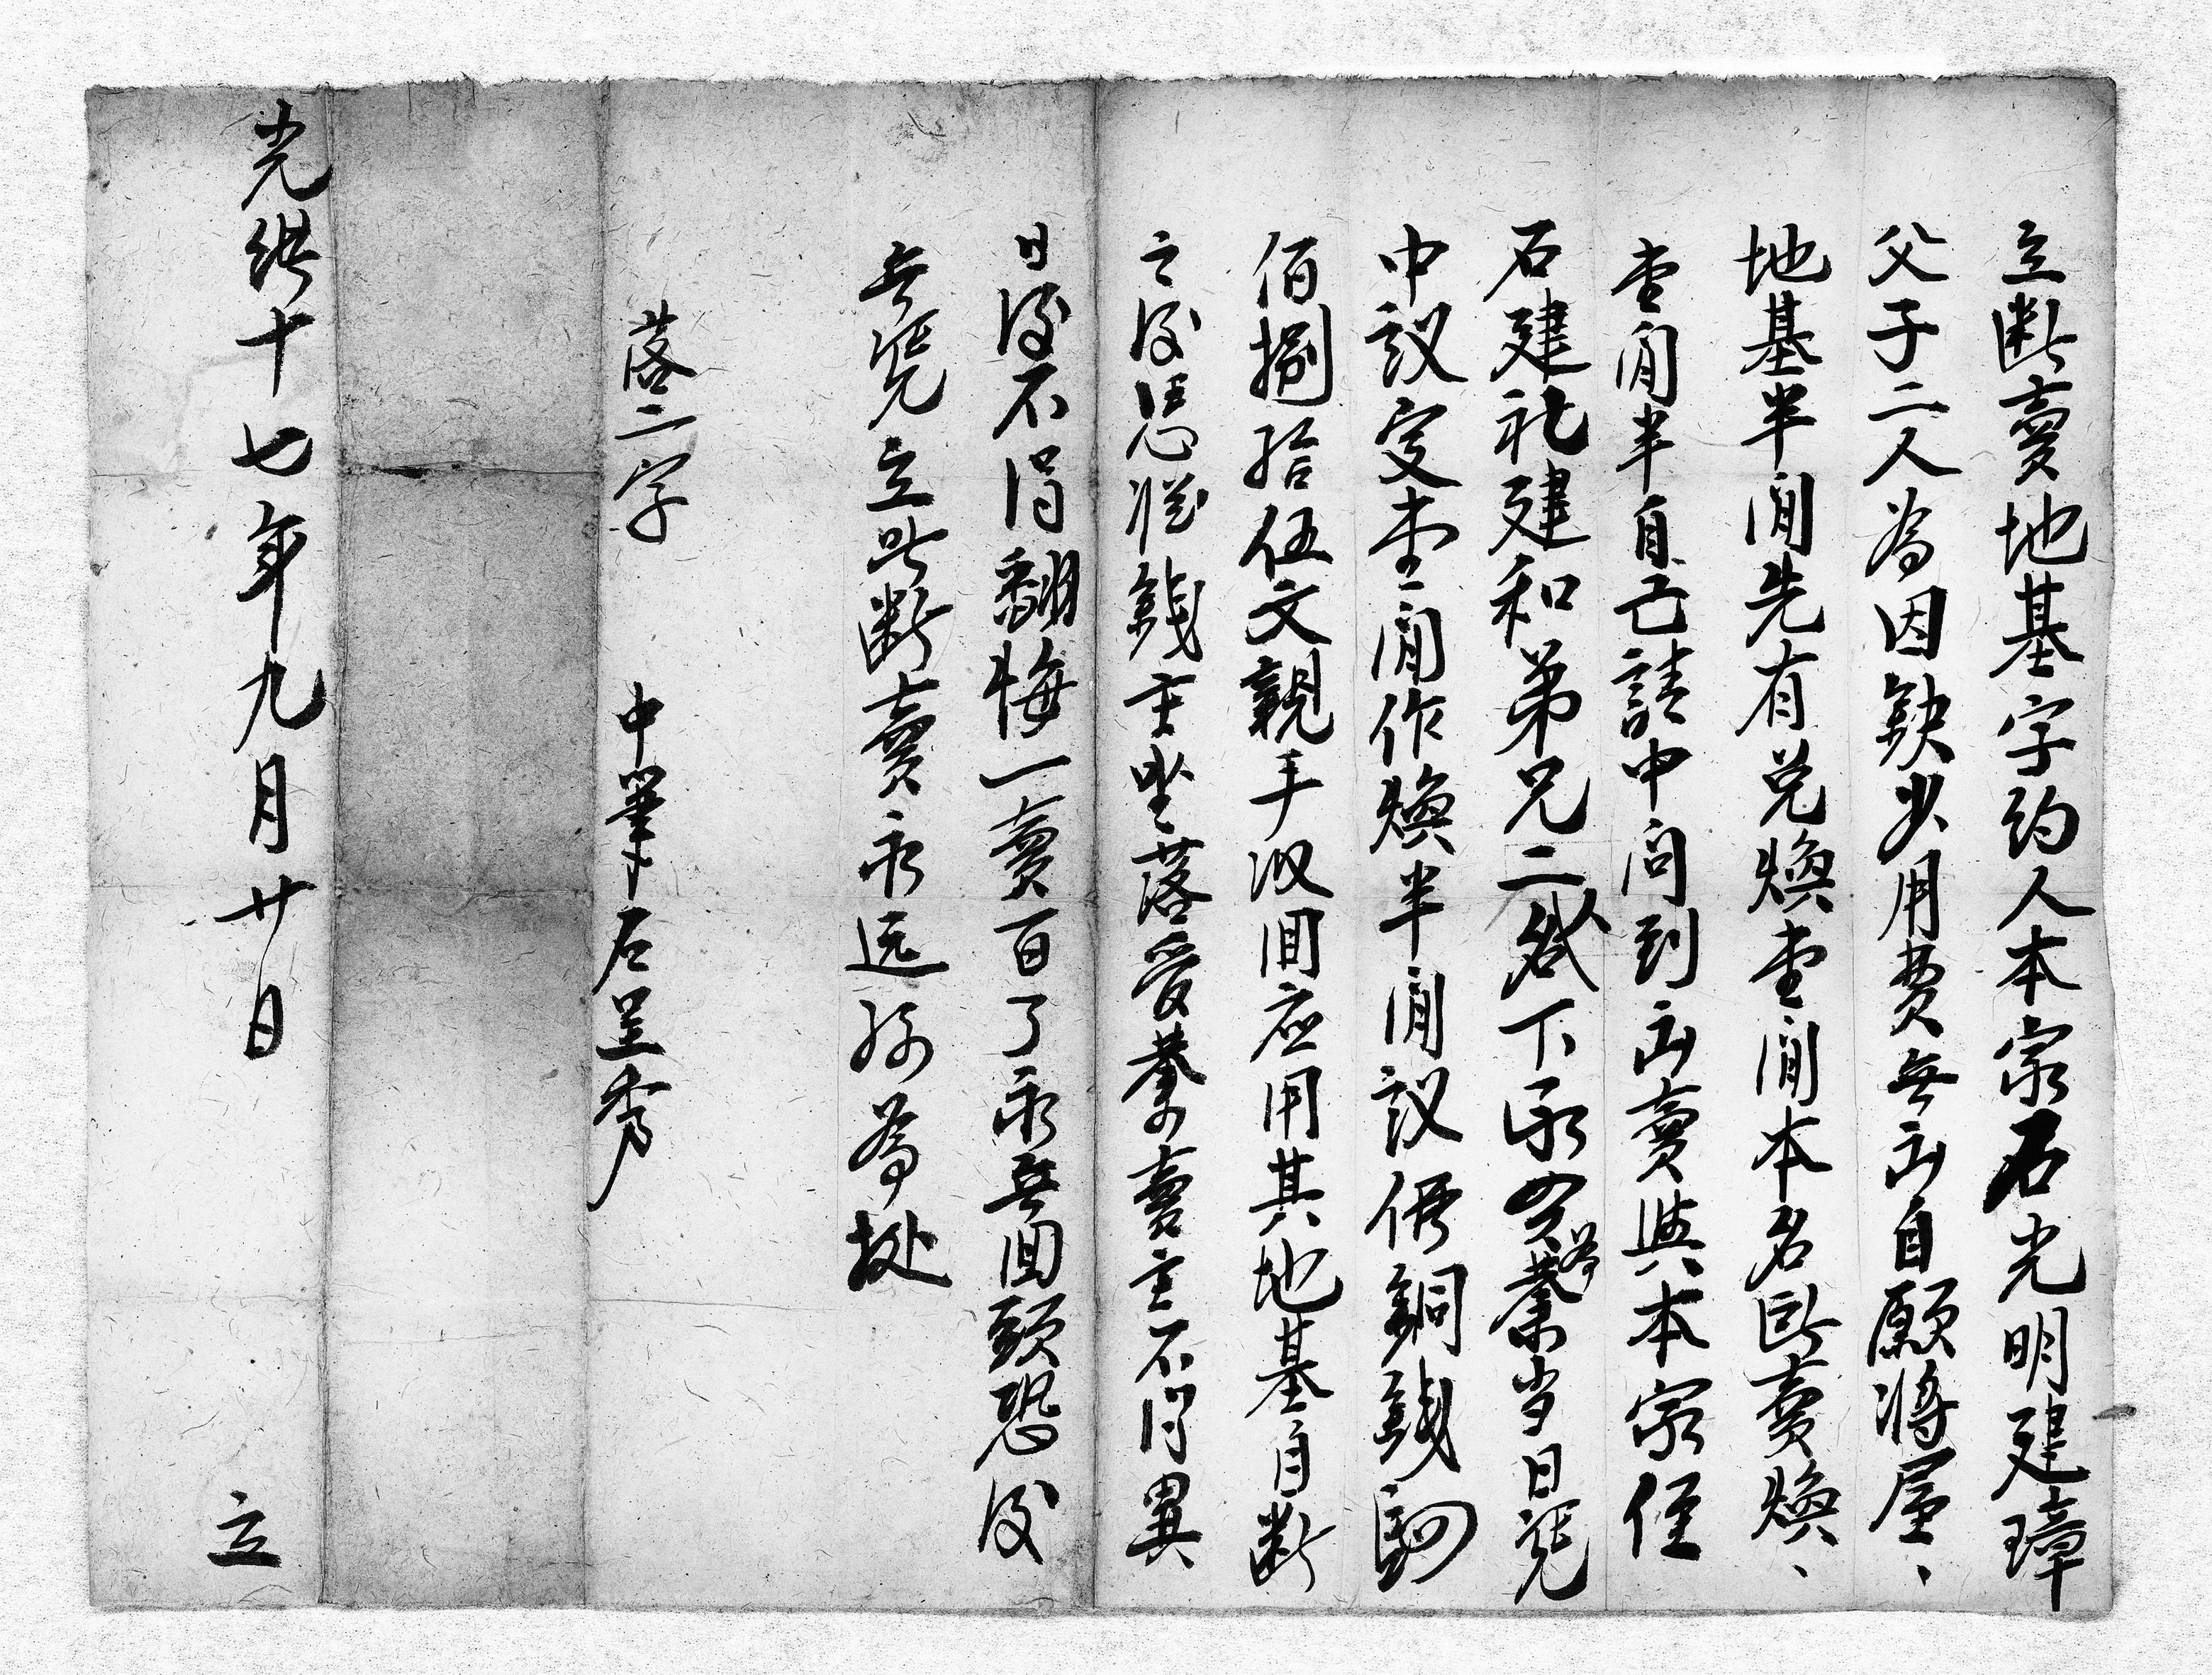 立断賣地基字約人本宗石光明建璋
父子二人為因缺少用費無出自願將屋、
地基半間先有兑煥壹間本名断賣煥、
壹間半自己請中问到出賣與本宗侄
石建礼建和弟兄二名下承買為業当日凴
中議定本壹間作煥半間議價銅錢
佰捌拾伍文親手收回应用其地基自断
之後憑從錢主坐落受業賣主不得異
日後不得翻悔一賣百了永無回頭恐後
無凴立此断賣永远存為拠
落二字
中筆石呈秀
光緒十七年九月廿日
立